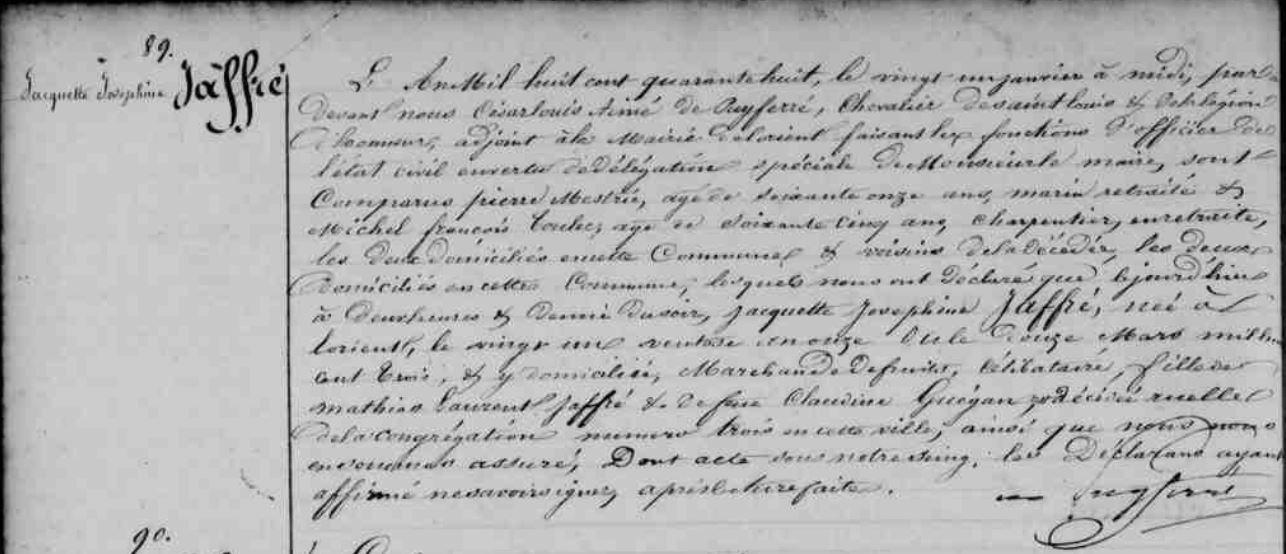 89.
Jacquette Josephine Jaffré
L'An Mil huit cent quarante huit, le vingt un janvier à midi, par
devant nous César louis Aimé de Puyferré, Chevalier de saint louis & de la légion
d'honneur, adjoint à la Mairie de lorient faisant les fonctions d'officier de
l'état civil en vertu de délégation spéciale de Monsieur le maire, sont
Comparus pierre Mestric, agé de soixante onze ans, marin retraité &
Michel françois agé de soixante cinq ans, charpentier, en retraite,
les deux domiciliés en cette Commune & voisins de la décédée, les deux
domiciliés en cette Commune, lesquels nous ont déclaré que bejourd'hui
à deux heures & demie du soir, jacquette Josephine Jaffré, née à
lorient, le vingt un ventose an onze ou le douze Mars mil huit
cent trois, & y domiciliée, Marchande de fruits, célibataire, fille de
mathias Laurent Jaffré & de feue Claudine Guégan décédée ruelle
de la congrégation numero trois en cette ville, ainsi que nous nous
en sommes assuré, Dont acte sous notre seing, les Déclarans ayant
affirmé ne savoir signer, après lecture faite.
Puyferré
90.